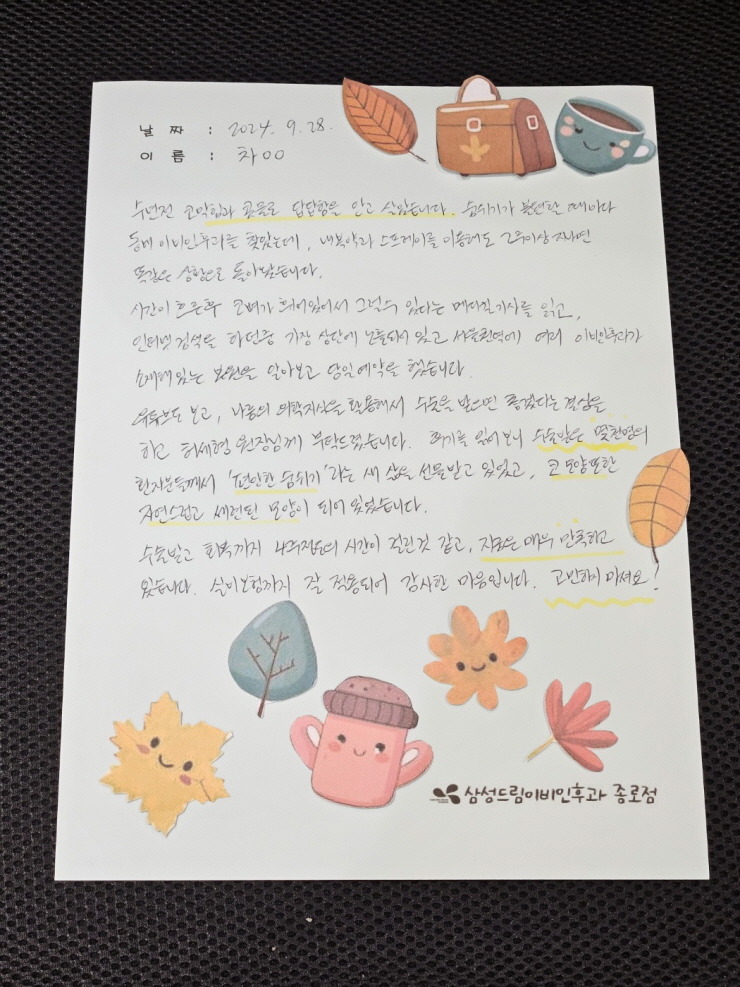 날 짜 : 2024. 9. 28.
이 름 : 차00
수년전 코막힘과 콧물로 답답함을 안고 살았습니다. 숨쉬기가 불편할 때마다
동네 이비인후과를 찾았는데, 내복약과 스프레이를 이용해도 2주이상 지나면
똑같은 상황으로 돌아왔습니다.
시간이 흐른후 코뼈가 휘어있어서 그럴수 있다는 메디컬기사를 읽고,
인터넷 검색을 하던중 가장 상단에 노출되어 있고 서울권역에 여러 이비인후과가
소재해있는 병원을 알아보고 당일예약을 했습니다.
유튜브도 보고, 나름의 의학지식을 활용해서 수술을 받으면 좋겠다는 결심을
하고 허세형 원장님께 부탁드렸습니다. 후기를 읽어보니 수술받은 몇천명의
환자분들께서 '편안한 숨쉬기'라는 새 삶을 선물받고 있었고, 코 모양또한
자연스럽고 세련된 모양이 되어 있었습니다.
수술받고 회복까지 4주정도의 시간이 걸린것 같고, 지금은 매우 만족하고
있습니다. 실비보험까지 잘 적용되어 감사한 마음입니다. 고민하지 마셔요!
삼성드림이비인후과 종로점